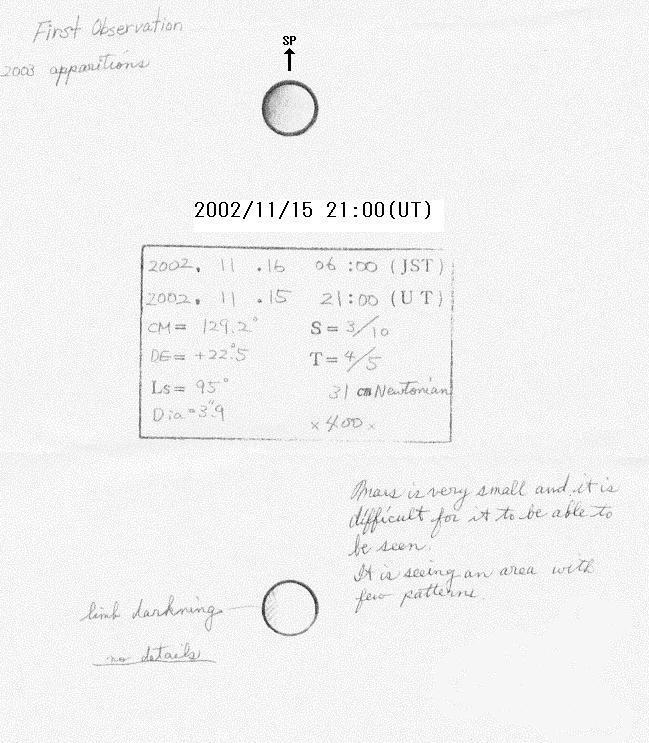 First Observation
2003 apparitions
SP
2002/11/15 21:00(UT)
2002. 11 .16 06:00 (JST)
2002. 11 .15 21:00 (UT)
CM= 129.2° S=3/10
DE= +22.°5 T=4/5
Ls= 95° 31 cm Newtonian
Dia=3."9 ×400×
Mars is very small and it is
difficult for it to be able to
be seen.
It is seeing an area with
few patterns.
limb darkning
no details